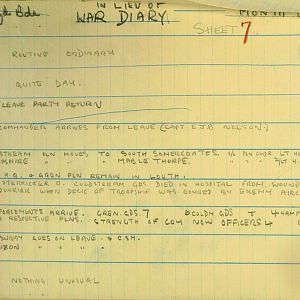 IN LIEU OF
WAR DIARY.
MONTH
SHEET 7
ROUTINE ORDINARY
QUITE DAY.
LEAVE PARTY RETURN
COMMANDER ARRIVES FROM LEAVE (CAPT E.J.B. NELSON.)
STREAM PLN MOVES TO SOUTH SOMERCOATES,
SHIRE " " " MABLETHORPE,
H.Q. & GREN PLN REMAIN IN LOUTH.
COLDSTREAM GDS DIED IN HOSPITAL FROM WOUND
DUNKIRK WHEN DECK OF TROOPSHIP WAS BOMBED BY ENEMY AIRC
FORCEMENTS ARRIVE, GREN. GDS. 7 COLDM GDS 7 4 HAMP
RESPECTIVE PLNS. STRENGTH OF COY NOW OFFICERS 4
GOES ON LEAVE. & C.S.M.
NOTHING UNUSUAL